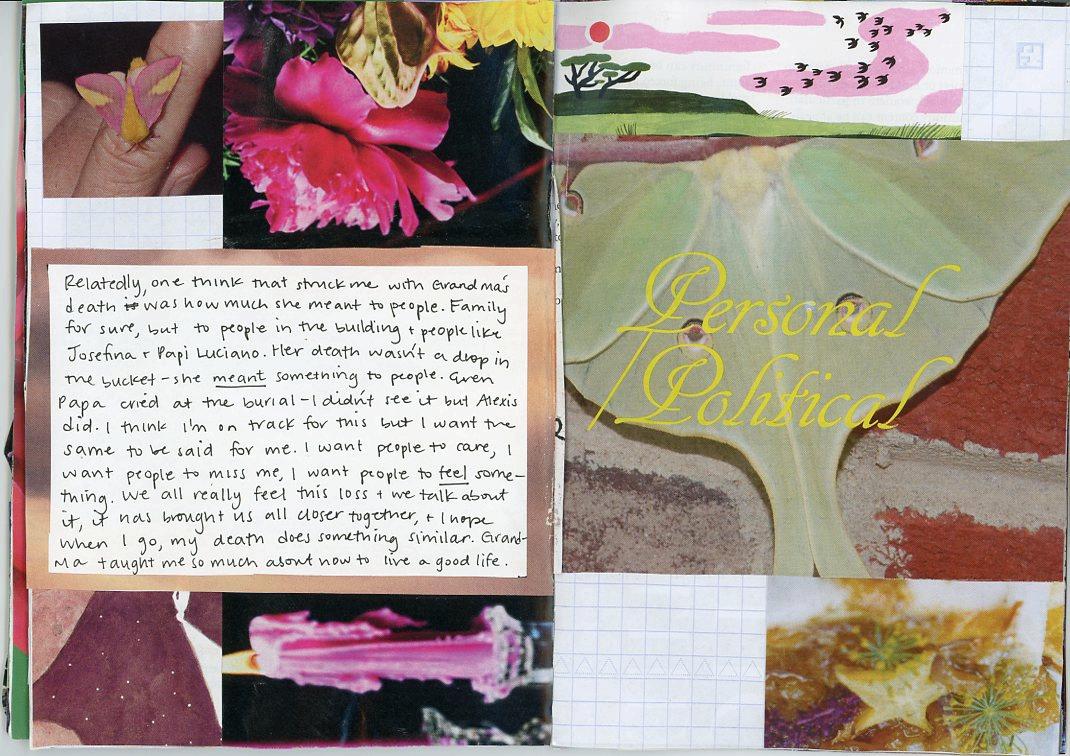 Relatedly, one think that struck me with Grandma's
death is was how much she meant to people. Family
for sure, but to people in the building + people like
Josefina + Papi Luciano. Her death wasn't a drop in
the bucket - she meant something to people. Even
Papa cried at the burial - I didn't see it but Alexis
did. I think I'm on track for this but I want the
same to be said for me. I want people to care, I
want people to miss me, I want people to feel some-
thing. We all really feel this loss + we talk about
it, it has brought us all closer together, + I hope
when I go, my death does something similar. Grand-
Ma taught me so much about how to live a good life.
Personal
/Political